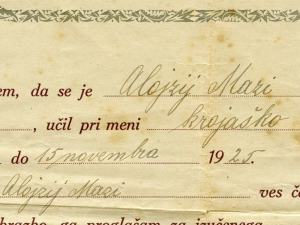 em, da se je Alojzij Mazi
, učil pri meni krojaško
do 15 novembra 1925.
Alojzij Mazi ves č
obrazbo, ga proglašam za izučenega